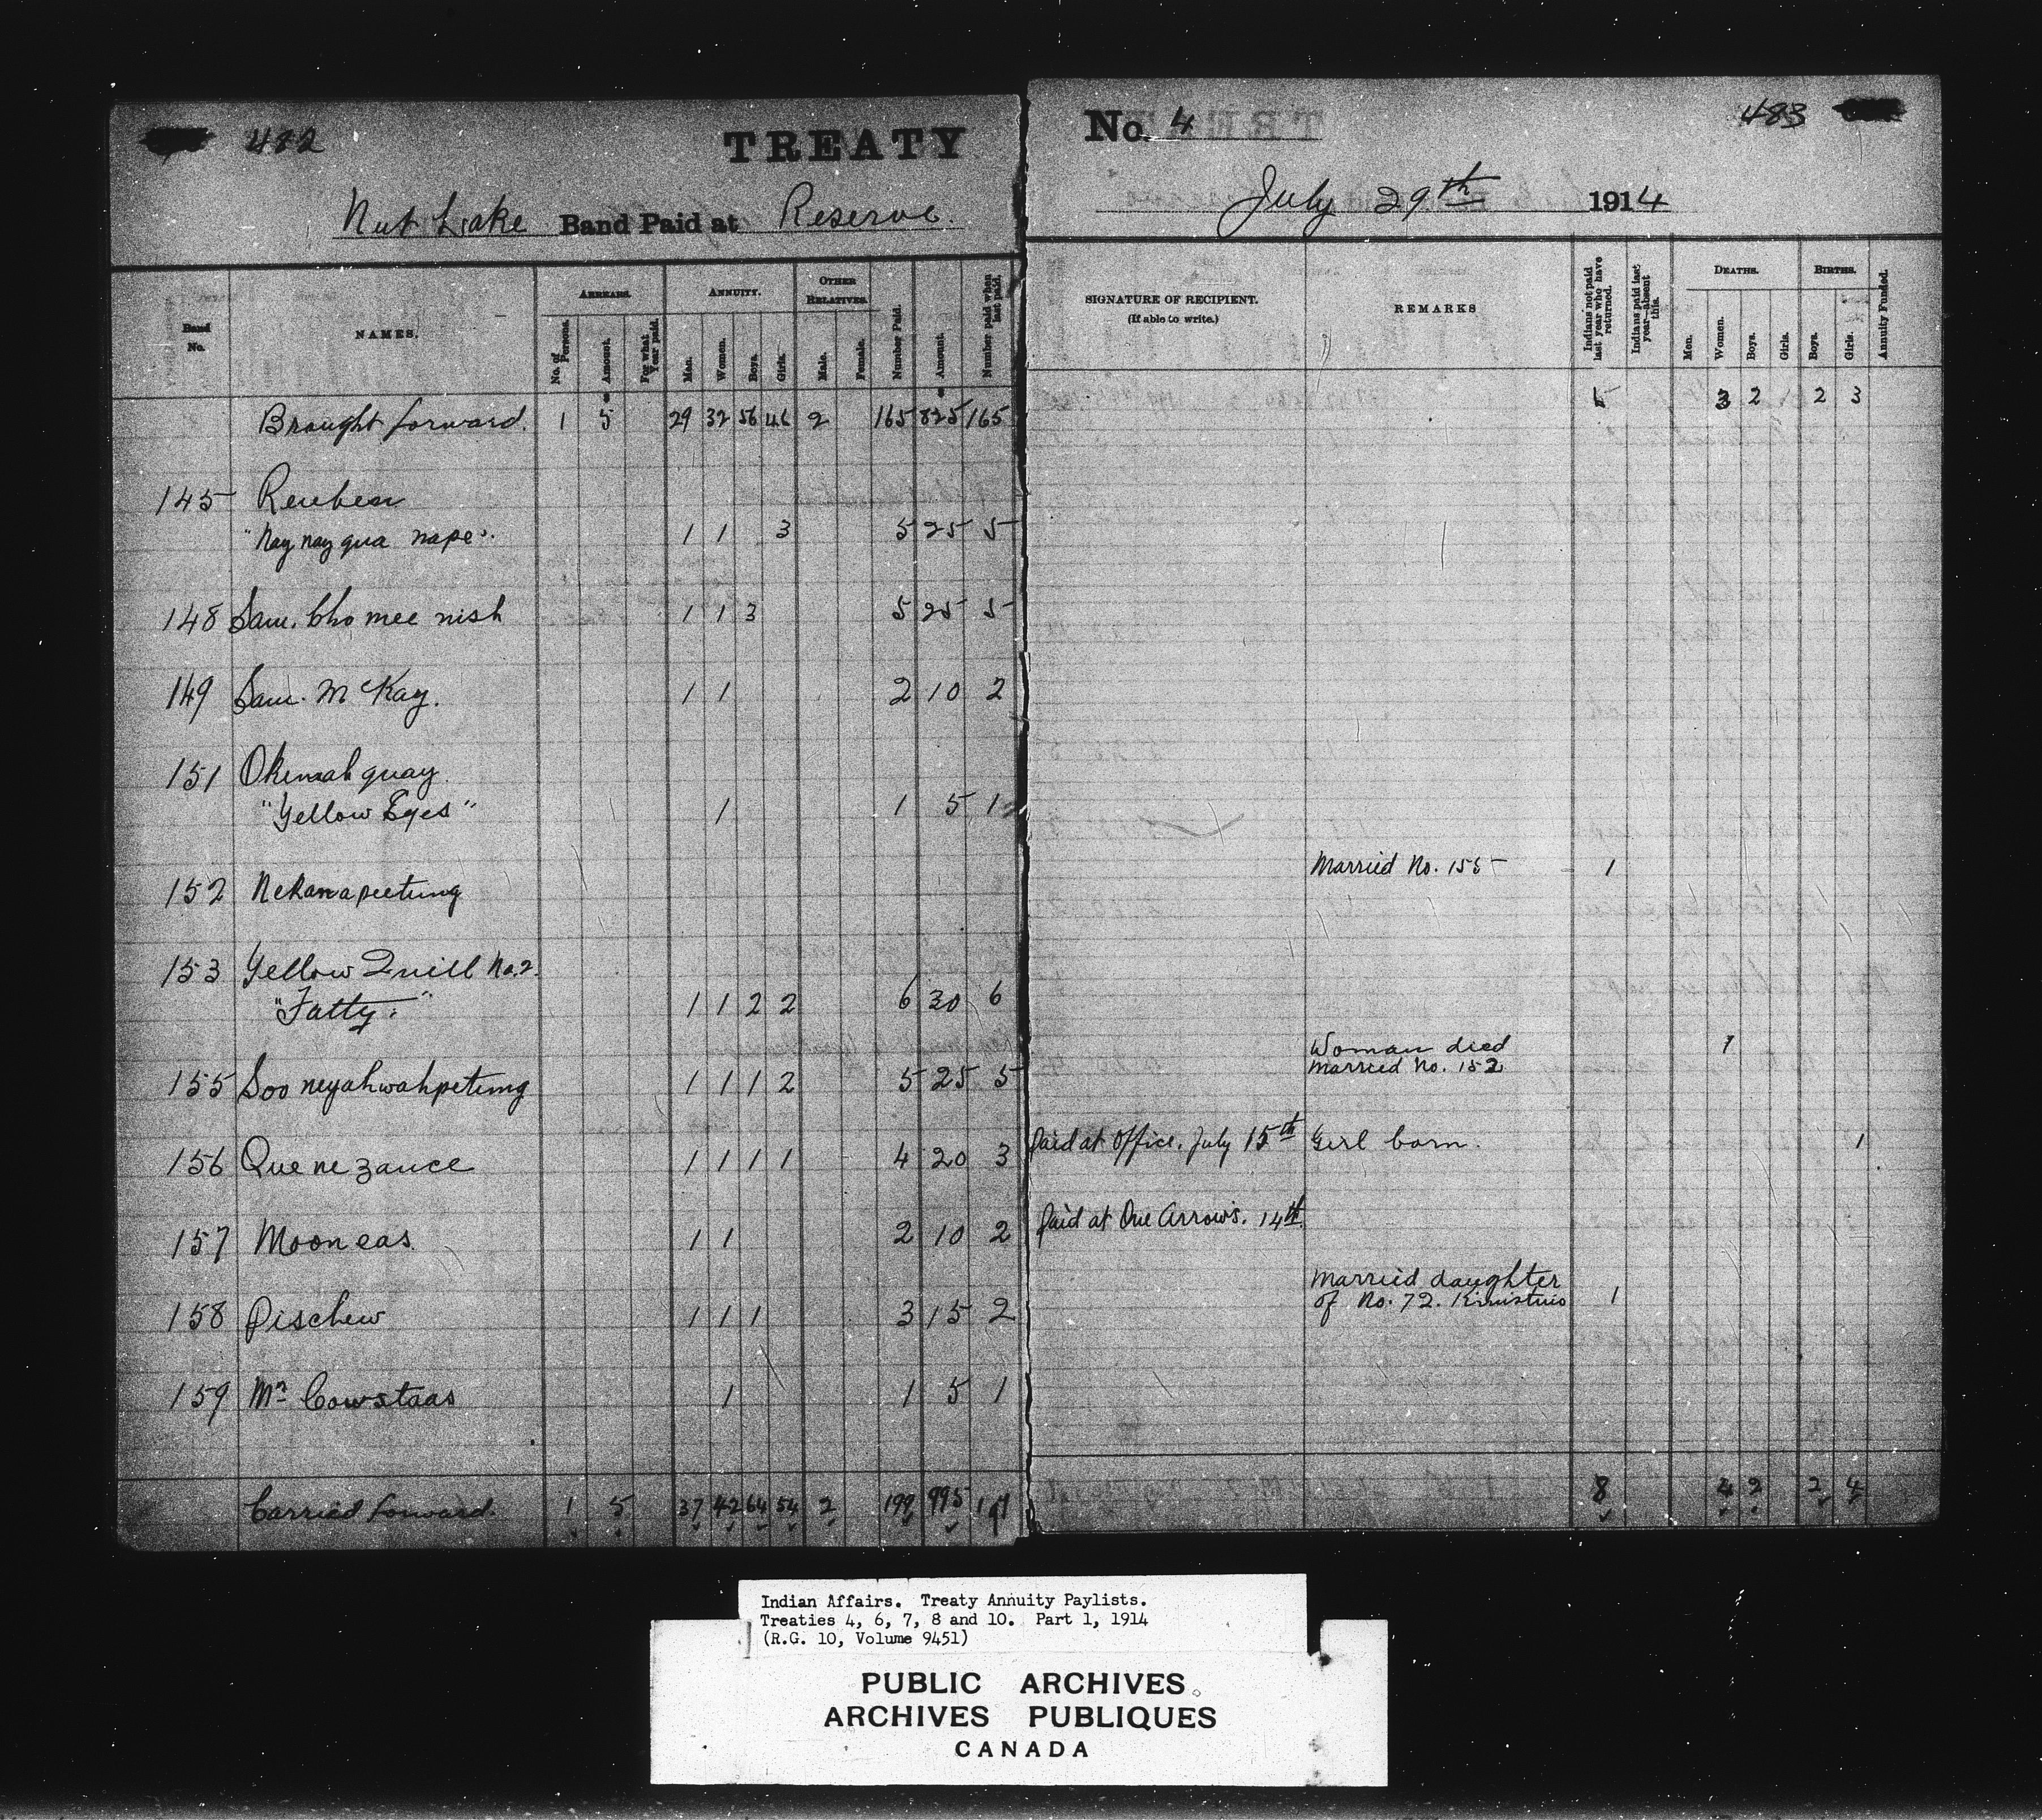 482
TREATY
No. 4
483
Nut Lake Band Paid at Reserve.
July 29th 1914
Band No.
NAMES.
ARREARS.
No. of Persons.
Amount.
For what Year paid.
ANNUITY.
Men.
Women.
Boys.
Girls.
OTHER RELATIVES.
Male.
Female.
Number Paid.
Amount.
Number paid when last paid.
SIGNATURE OF RECIPIENT.
(If able to write.)
REMARKS
Indians not paid last year who have returned.
Indians paid last year—absent this.
DEATHS.
Men.
Women.
Boys.
Girls.
BIRTHS.
Boys.
Girls.
Annuity Funded.
Brought forward. 1 5 29 32 56 46 2 165 825 165 3 2 2 3
145 Reuben
"Nay nay qua nape". 1 1 3 5 25 5
148 Sam. Cho mee nish 1 1 3 5 25 5
149 Sam. McKay. 1 1 2 10 2
151 Okemah quay.
"Yellow Eyes" 1 1 5 1
Married No. 155 1
152 Nekanapeetung
153 Yellow Quill No. 2.
"Fatty." 1 1 2 2 6 30 6
Woman died 1
Married No. 152
155 Soo neyahwahpetung 1 1 1 2 5 25 5
Paid at Office. July 15th Girl born. 1
156 Que ne zance 1 1 1 1 4 20 3
Paid at One Arrow's. 14th.
157 Mooneas. 1 1 2 10 2
Married daughter
of No. 72. Kinistino 1
158 Pischew 1 1 1 3 15 2
159 Mrs Cowstaas 1 1 5 1
Carried forward. 1 5 37 42 64 54 2 199 995 8 4 2 2 4
Indian Affairs. Treaty Annuity Paylists.
Treaties 4, 6, 7, 8 and 10. Part 1, 1914
(R.G. 10, Volume 9451)
PUBLIC ARCHIVES
ARCHIVES PUBLIQUES
CANADA